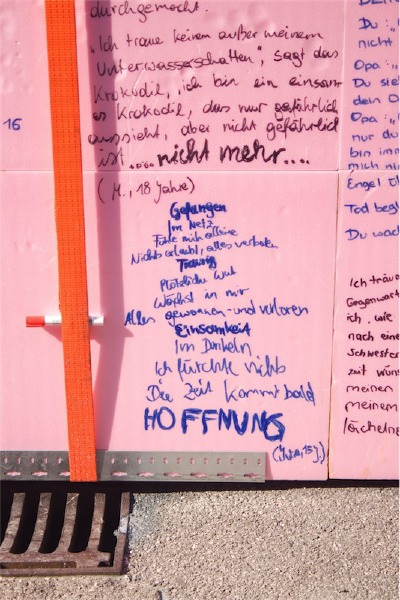 durchgemacht.
„Ich traue keinem außer meinem
Unterwasserschatten", sagt das
Krokodil, „ich bin ein einsam
es Krokodil, das nur gefährlich
aussieht, aber nicht gefährlich
ist..... nicht mehr....
(M., 18 Jahre)
Gefangen
Im Netz
Fühle mich alleine
Nichts erlaubt, alles verboten
Traurig
Plötzliche Wut
Wächst in mir
Alles gewonnen und verloren
Einsamkeit
Im Dunkeln
Ich fürchte nichts
Die Zeit kommt bald
HOFFNUNG
15 J.)
16
Du: „
nicht
Opa:
Du sie
dein O
Opa: „
nur du
bin imm
mich ni
Engel
Tod beg
Du wac
Ich träu
Gegenwart
ich, wie
nach eine
Schwester
zeit wüns
meinen
meinem
lächeln